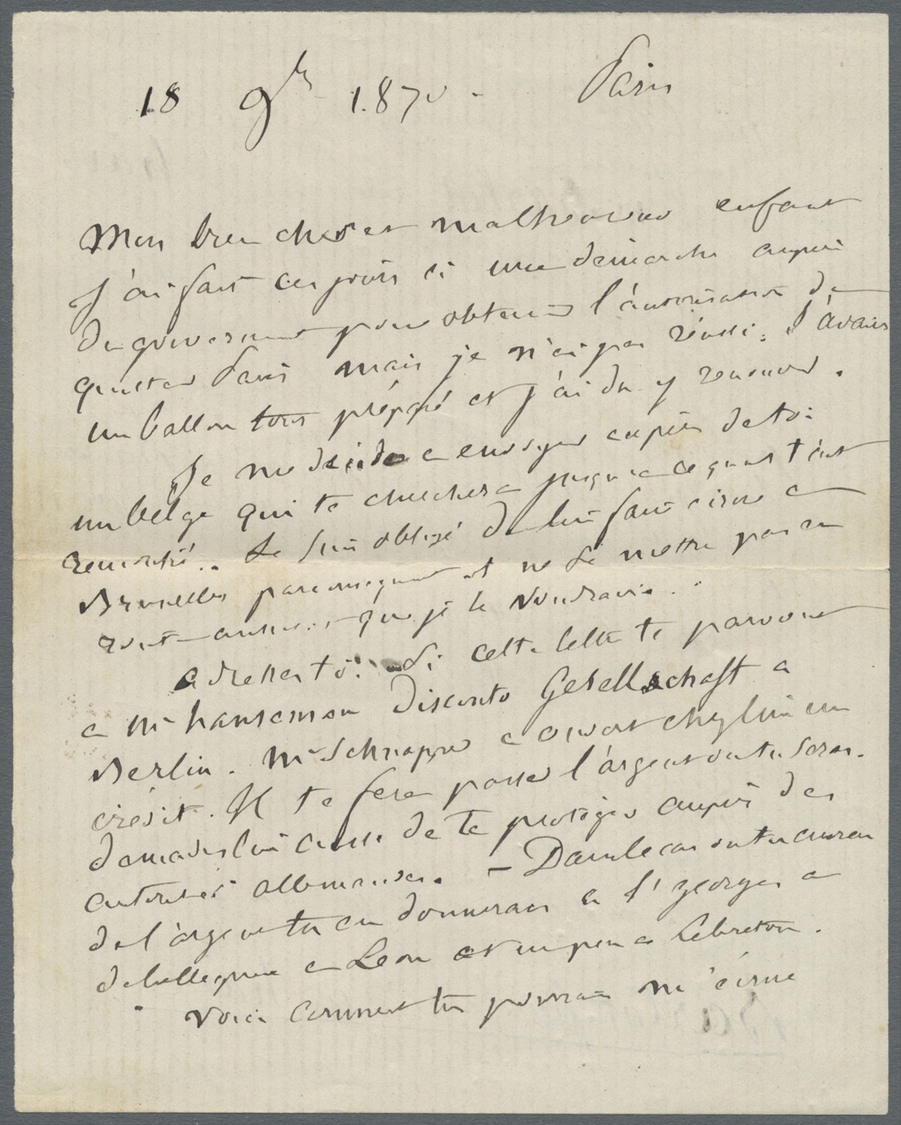 18 9bre 1870 - Paris
Mon bien cher et malheureux enfant
J'ai fait ces jours ci une démarche auprès
du gouvernement pour obtenir l'autorisation de
quitter Paris mais je n'ai pas réussi. J'avais
un ballon tout préparé et j'ai du y renoncer.
Je me décide a envoyer auprès de toi
un belge qui te cherchera jusqu'a ce qu'il t'ait
rencontré.. Je suis obligé de le faire
Bruxelles par conséquent et ne se mettra pas en
route aussi que je le voudrais.
adresse toi. Si cette lettre te parvient
a Mr hanseman Disconto Gesellschaft a
Berlin. Mr Schnapper a ouvert chez lui un
crésit. Il te fera passer l'argent dont tu seras.
demandes lui aussi de te protéger auprès des
autorités allemandes. - Dans le cas ou tu aurais
de l'argent tu en donneras a St georges a
debellegarde a Leon et un peu a Lebreton.
Voici comment tu pourrais m'écrire